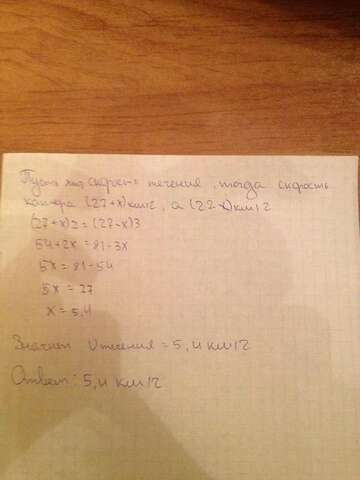 Пусть х скорость течения, тогда скорость
катера (27+х)км/ч, а (27-х)км/ч
(27+х)2=(27-х)3
54+2х=81-3х
5х=81-54
5х=27
х=5,4
Значит Vтечения=5,4 км/ч
Ответ: 5,4 км/ч